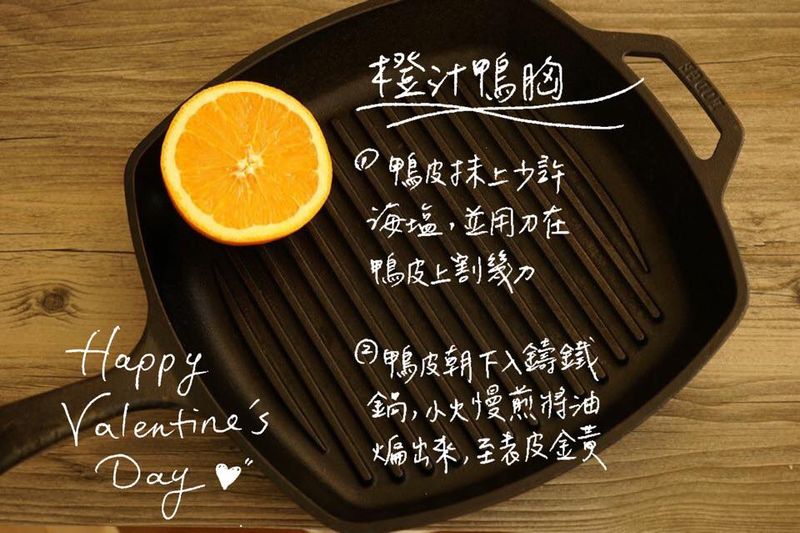 橙汁鴨胸
① 鴨皮抹上少許
海塩，並用刀在
鴨皮上割幾刀
② 鴨皮朝下入鑄鐵
鍋，小火慢煎將油
煸出來，至表皮金黃
Happy
Valentine's
Day